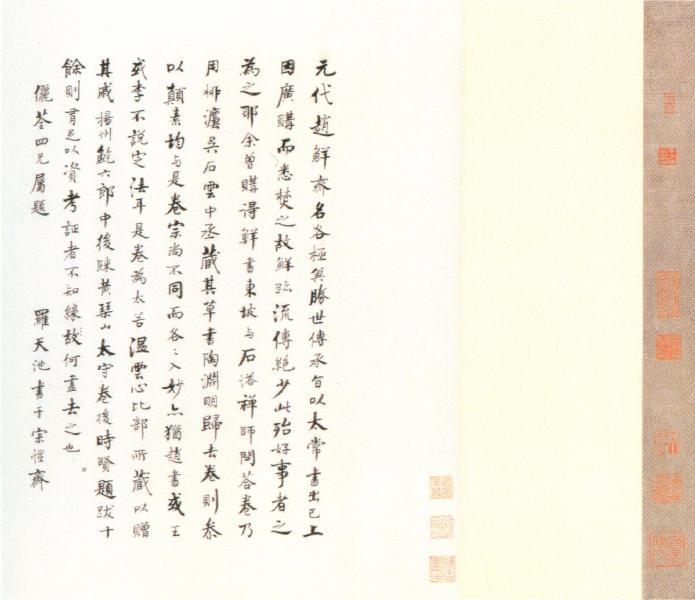 元代趙鮮齊名各極其勝世傳承旨以太常書出己上
因廣購而悉焚之故鮮跡流傳絕少此殆好事者之
為之耶余曾購得鮮書東坡與石塔禪師問答卷乃
用柳濃吳石雲中丞藏其草書陶淵明歸去卷則參
以顛素均与是卷宗尚不同而各々入妙亦猶趙書或王
或李不說定法耳是卷為太谷溫雲心比部所藏以贈
其戚揚州鮑六郎中後跋黃琴山太守卷後時賢題跋十
餘則足以資考証者不知緣故何盡去之也
儷荃四兄屬題
羅天池書于宗惺齋